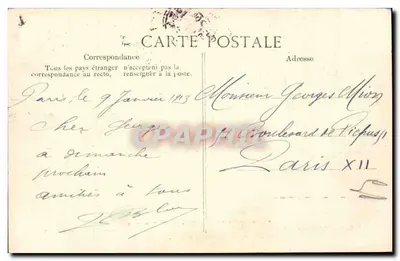 CARTE POSTALE
Correspondance
Tous les pays étranger n'acceptent pas la
correspondance au recto, renseigner à la poste.
Adresse
Paris, le 9 Janvier 1913
Cher Georges
à dimanche
prochain
amitiés à tous
Monsieur Georges
Boulevard de Picpus
Paris XII